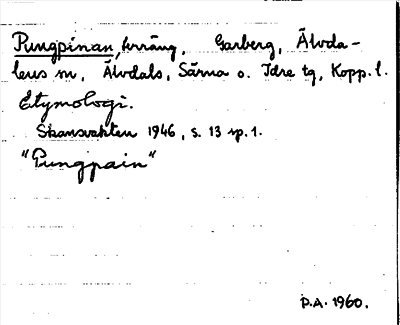 Pungpinan, hvräng, Garberg, Älvda-
lens sn, Älvdals, Särna o. Idre tg, Kopp. l.
Etymologi.
Skansvakten 1946, s. 13 sp. 1.
"Pungpain"
D.A. 1960.